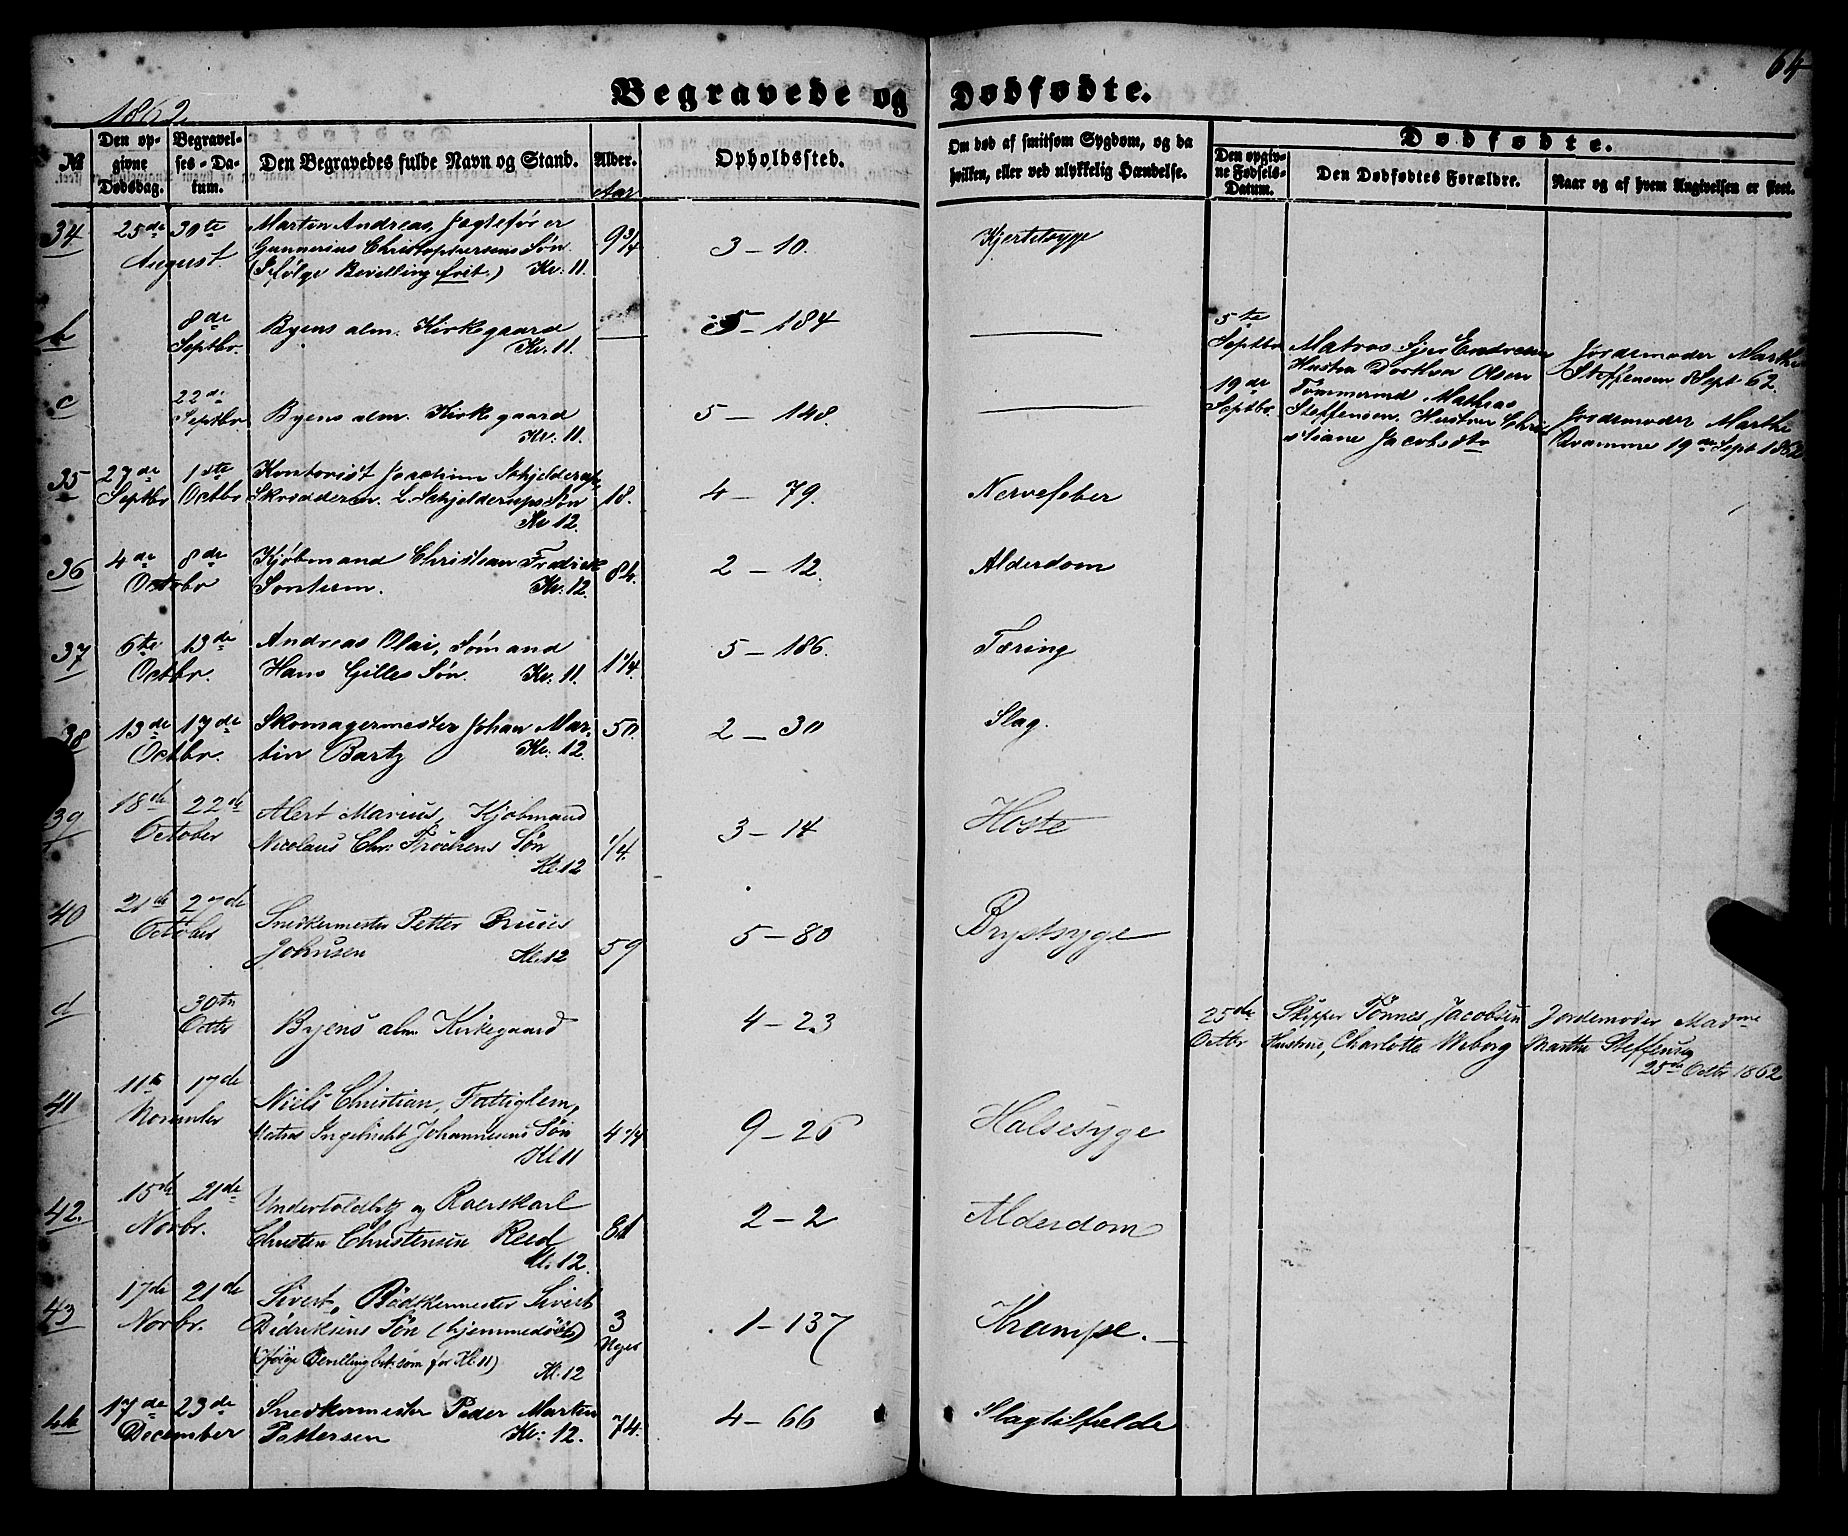 64
1862.
Begravede og Dødfødte.
№
Den opgivne Dødsdag.
Begravelses-Datum.
Den Begravedes fulde Navn og Stand.
Alder.
Aar
Opholdssted.
Om død af smitsom Sygdom, og da hvilken, eller ved ulykkelig Hændelse.
Dødfødte.
Den opgivne Fødsels-Datum.
Den Dødfødtes Forældre.
Naar og af hvem Angivelsen er skeet.
34 25de 30te Martin Andreas, Jagtefører 9 3/4 3 – 10. Kjertelsyge
August. Gunnerius Christophersens Søn.
(Ifølge Bevilling frit.) Kr. 11.
b 8de Byens alm. Kirkegaard — 5 – 184 — 5te
Septbr. Kr. 11. Septbr Matros Endresen Jordemoder Marthe
Hustru Dorthea Olsen Steffensen 8 Sept 62.
c 22de Byens alm. Kirkegaard 5 – 148. — 19de Tømmermd Mathias
Septbr Kr. 11. Septbr. Steffensen. Hustru Chri- Jordemoder Marthe
stiane Jacobsdtr Qvamme 19de Sept 1862
35 27de 1ste Kontorist Joachim Schjelderup, 18. 4 – 79. Nervefeber
Septbr Octbr Skrædderm. L. Schjelderups Søn
Kr 12.
36 4de 8de Kjøbmand Christian Fredrik 84. 2 – 12. Alderdom
Octobr Sontum. Kr. 12.
37 6te 13de Andreas Olai, Sømand 1 1/4. 5 – 186. Tæring
Octbr. Hans Gilles Søn. Kr. 11.
38 13de 17de Skomagermester Johan Mar- 50. 2 – 30 Slag.
Octbr. tin Bartz Kr. 12.
39 18de 22de Alert Marius, Kjøbmand 1/4. 3 – 14 Hoste
October Nicolaus Chr. Søn
Kl. 12
40 21de 27de Snedkermester Petter Bruus 59 5 – 80 Brystsyge
October Johnsen Kl. 12
d 30te Byens alm. Kirkegaard 4 – 23 25de Skipper Tønnes Jacobsen Jordemoder Madme
Octbr Octbr Hustrue, Charlotte Wiborg Marthe Steffensen
25de Octbr 1862
41 11te 17de Niels Christian, Fattiglem, 4 1/4 9 – 26 Halsesyge
November Matros Ingebricht Johannesens Søn
Kl. 11
42. 15de 21de Undertoldbtj og Roerskarl 81 2 – 2 Alderdom
Novbr. Christen Christensen Reed
Kl. 12.
43 17de 21de Sivert, Bødkermester Sivert 3 1 – 137 Krampe. —
Novbr. Didriksens Søn (hjemmedøbt) Uger
(Ifølge Bevilling bet. som for Kl. 11) Kl. 12
44 17de 23de Snedkermester Peder Martin 74. 4 – 66 Slagtilfælde
December Pettersen Kl. 12.